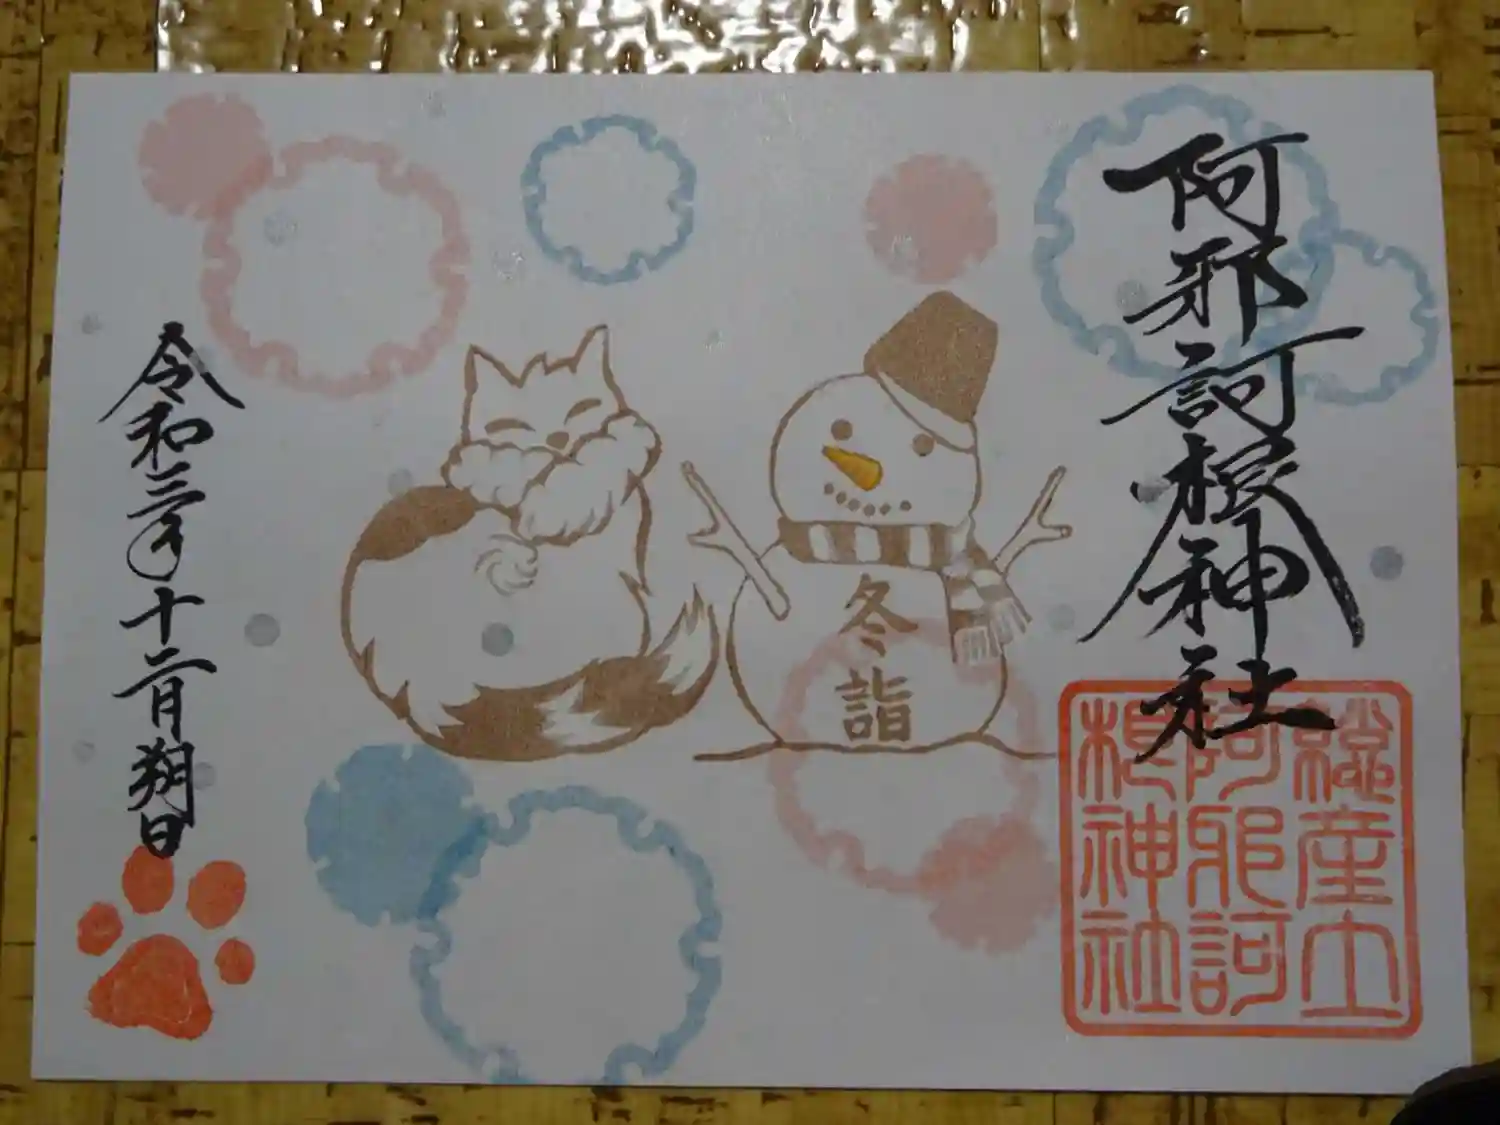 阿邪訶根神社
總産土
阿邪訶
根神社
冬詣
令和三年十二月朔日